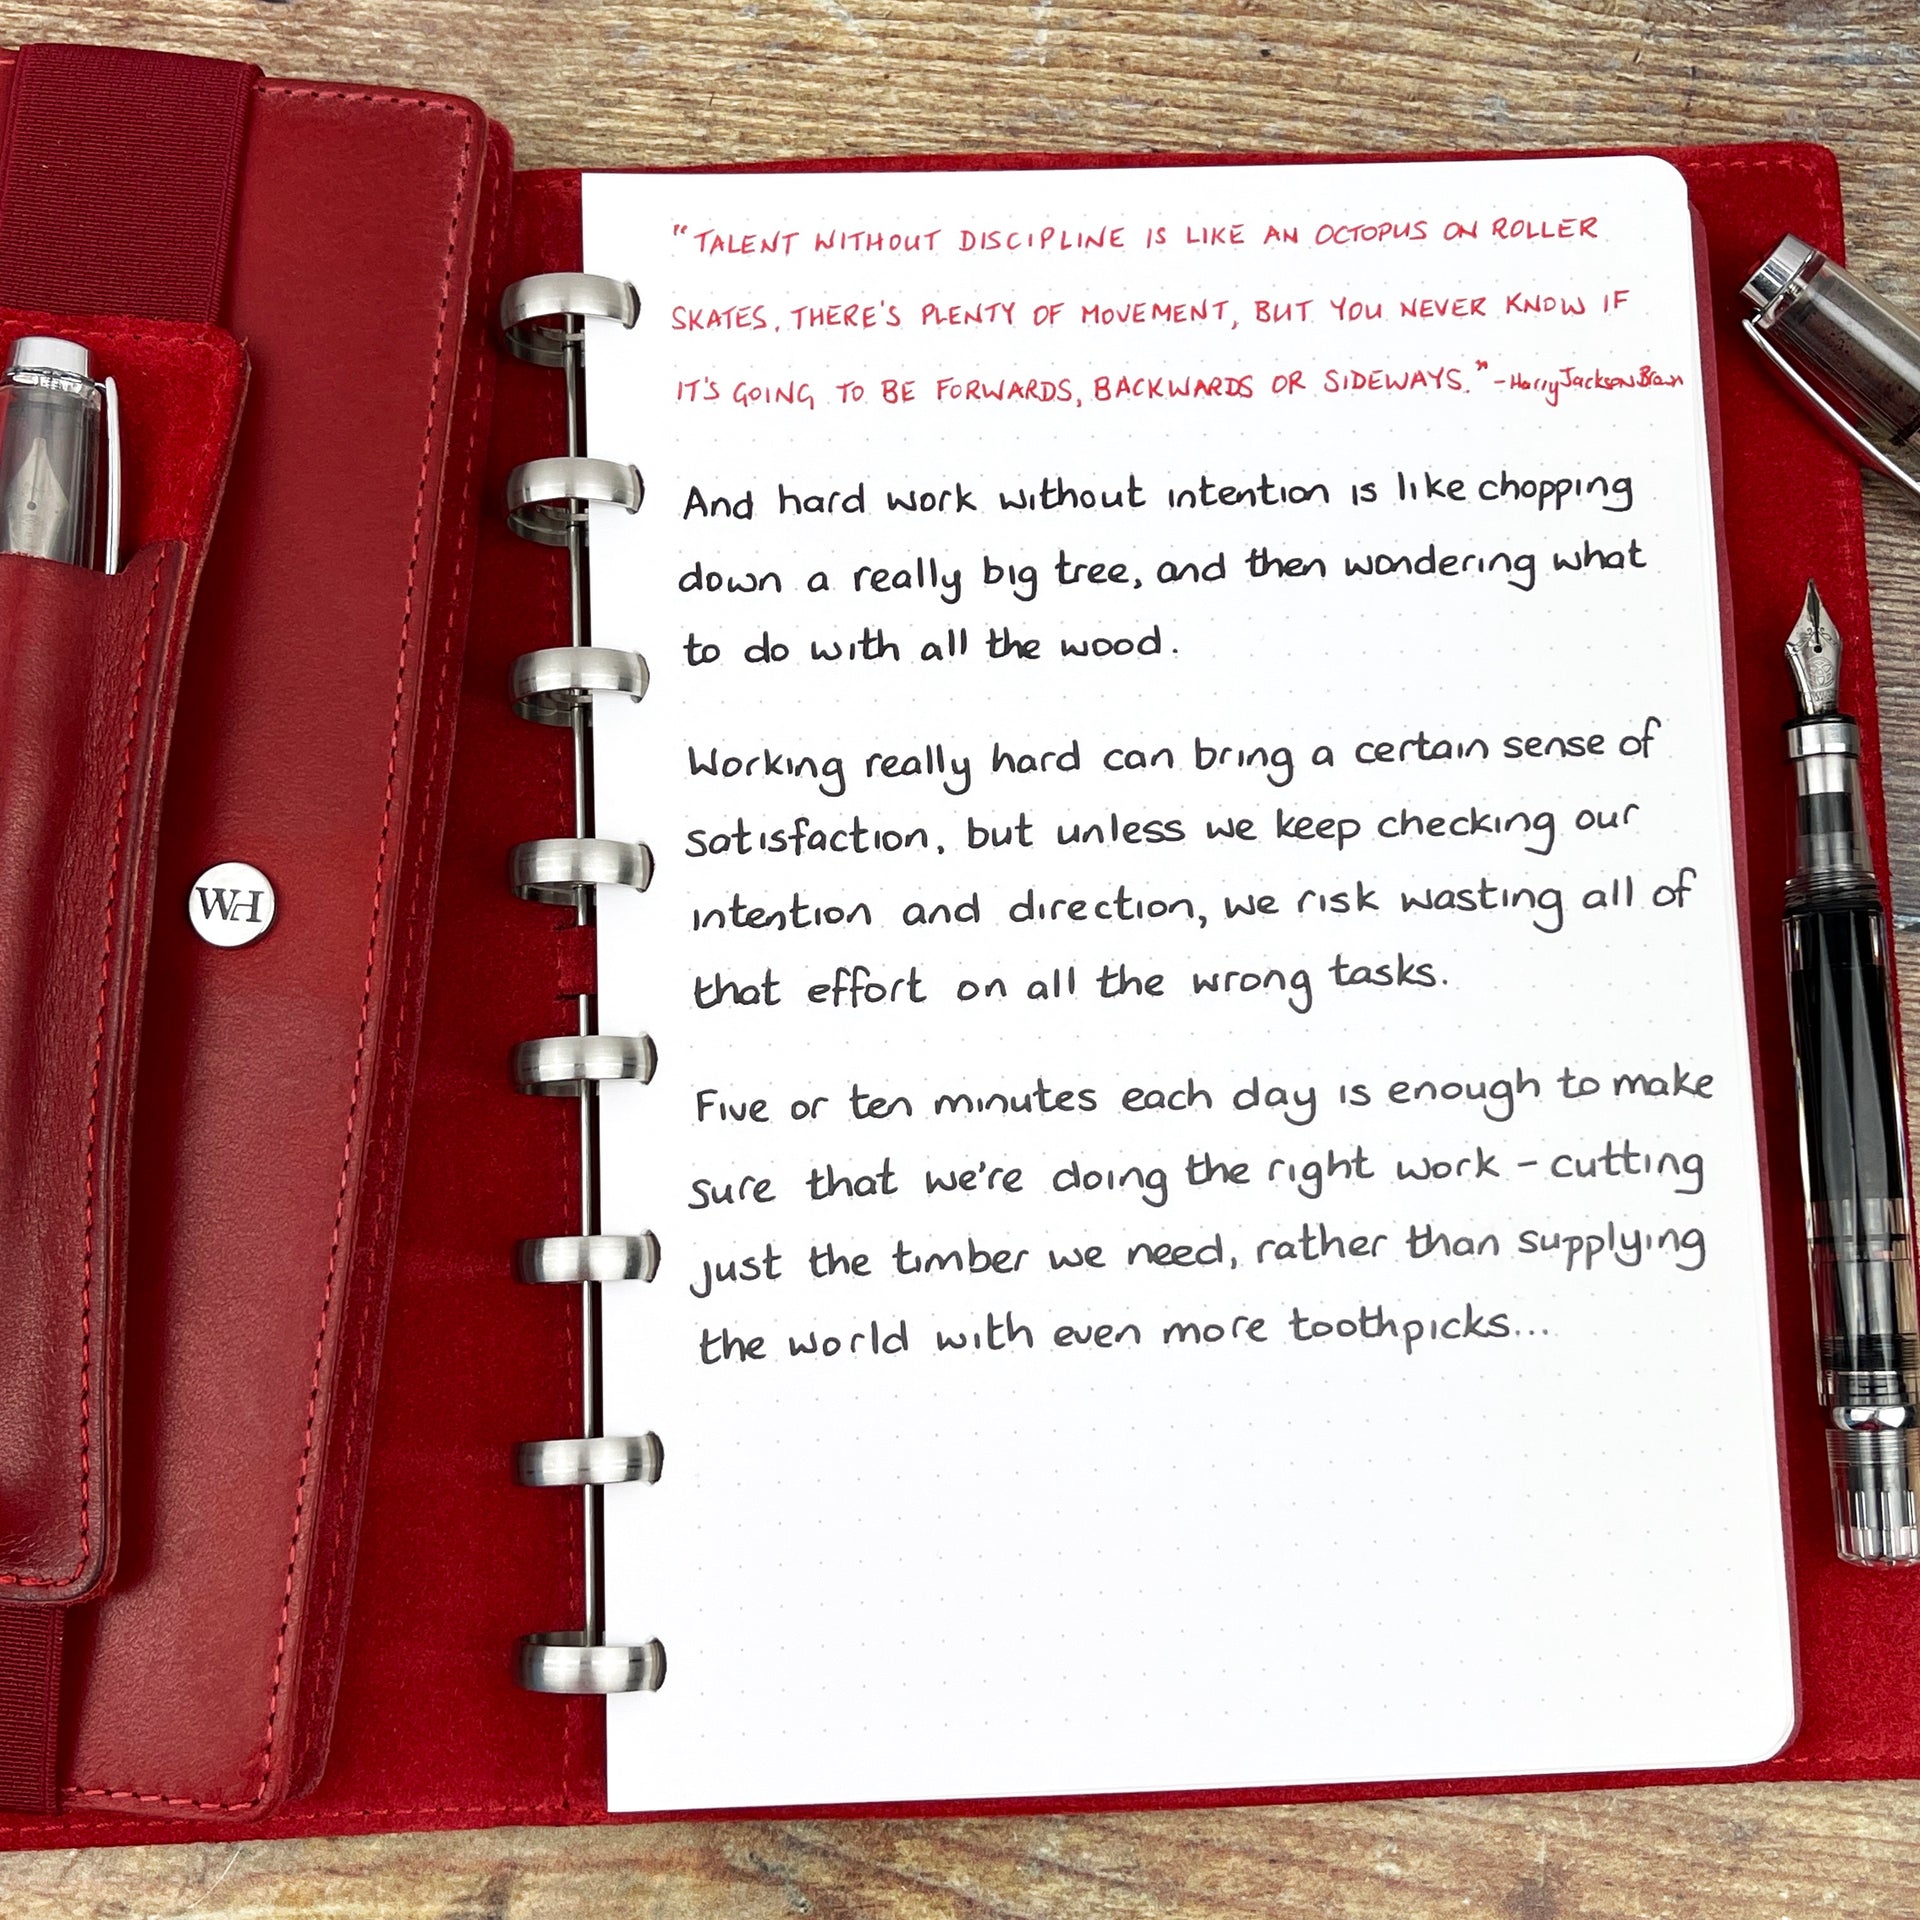 "TALENT WITHOUT DISCIPLINE IS LIKE AN OCTOPUS ON ROLLER
SKATES. THERE'S PLENTY OF MOVEMENT, BUT YOU NEVER KNOW IF
IT'S GOING TO BE FORWARDS, BACKWARDS OR SIDEWAYS." - Harry Jackson Brown
And hard work without intention is like chopping
down a really big tree, and then wondering what
to do with all the wood.
Working really hard can bring a certain sense of
satisfaction, but unless we keep checking our
intention and direction, we risk wasting all of
that effort on all the wrong tasks.
Five or ten minutes each day is enough to make
sure that we're doing the right work - cutting
just the timber we need, rather than supplying
the world with even more toothpicks...
WH